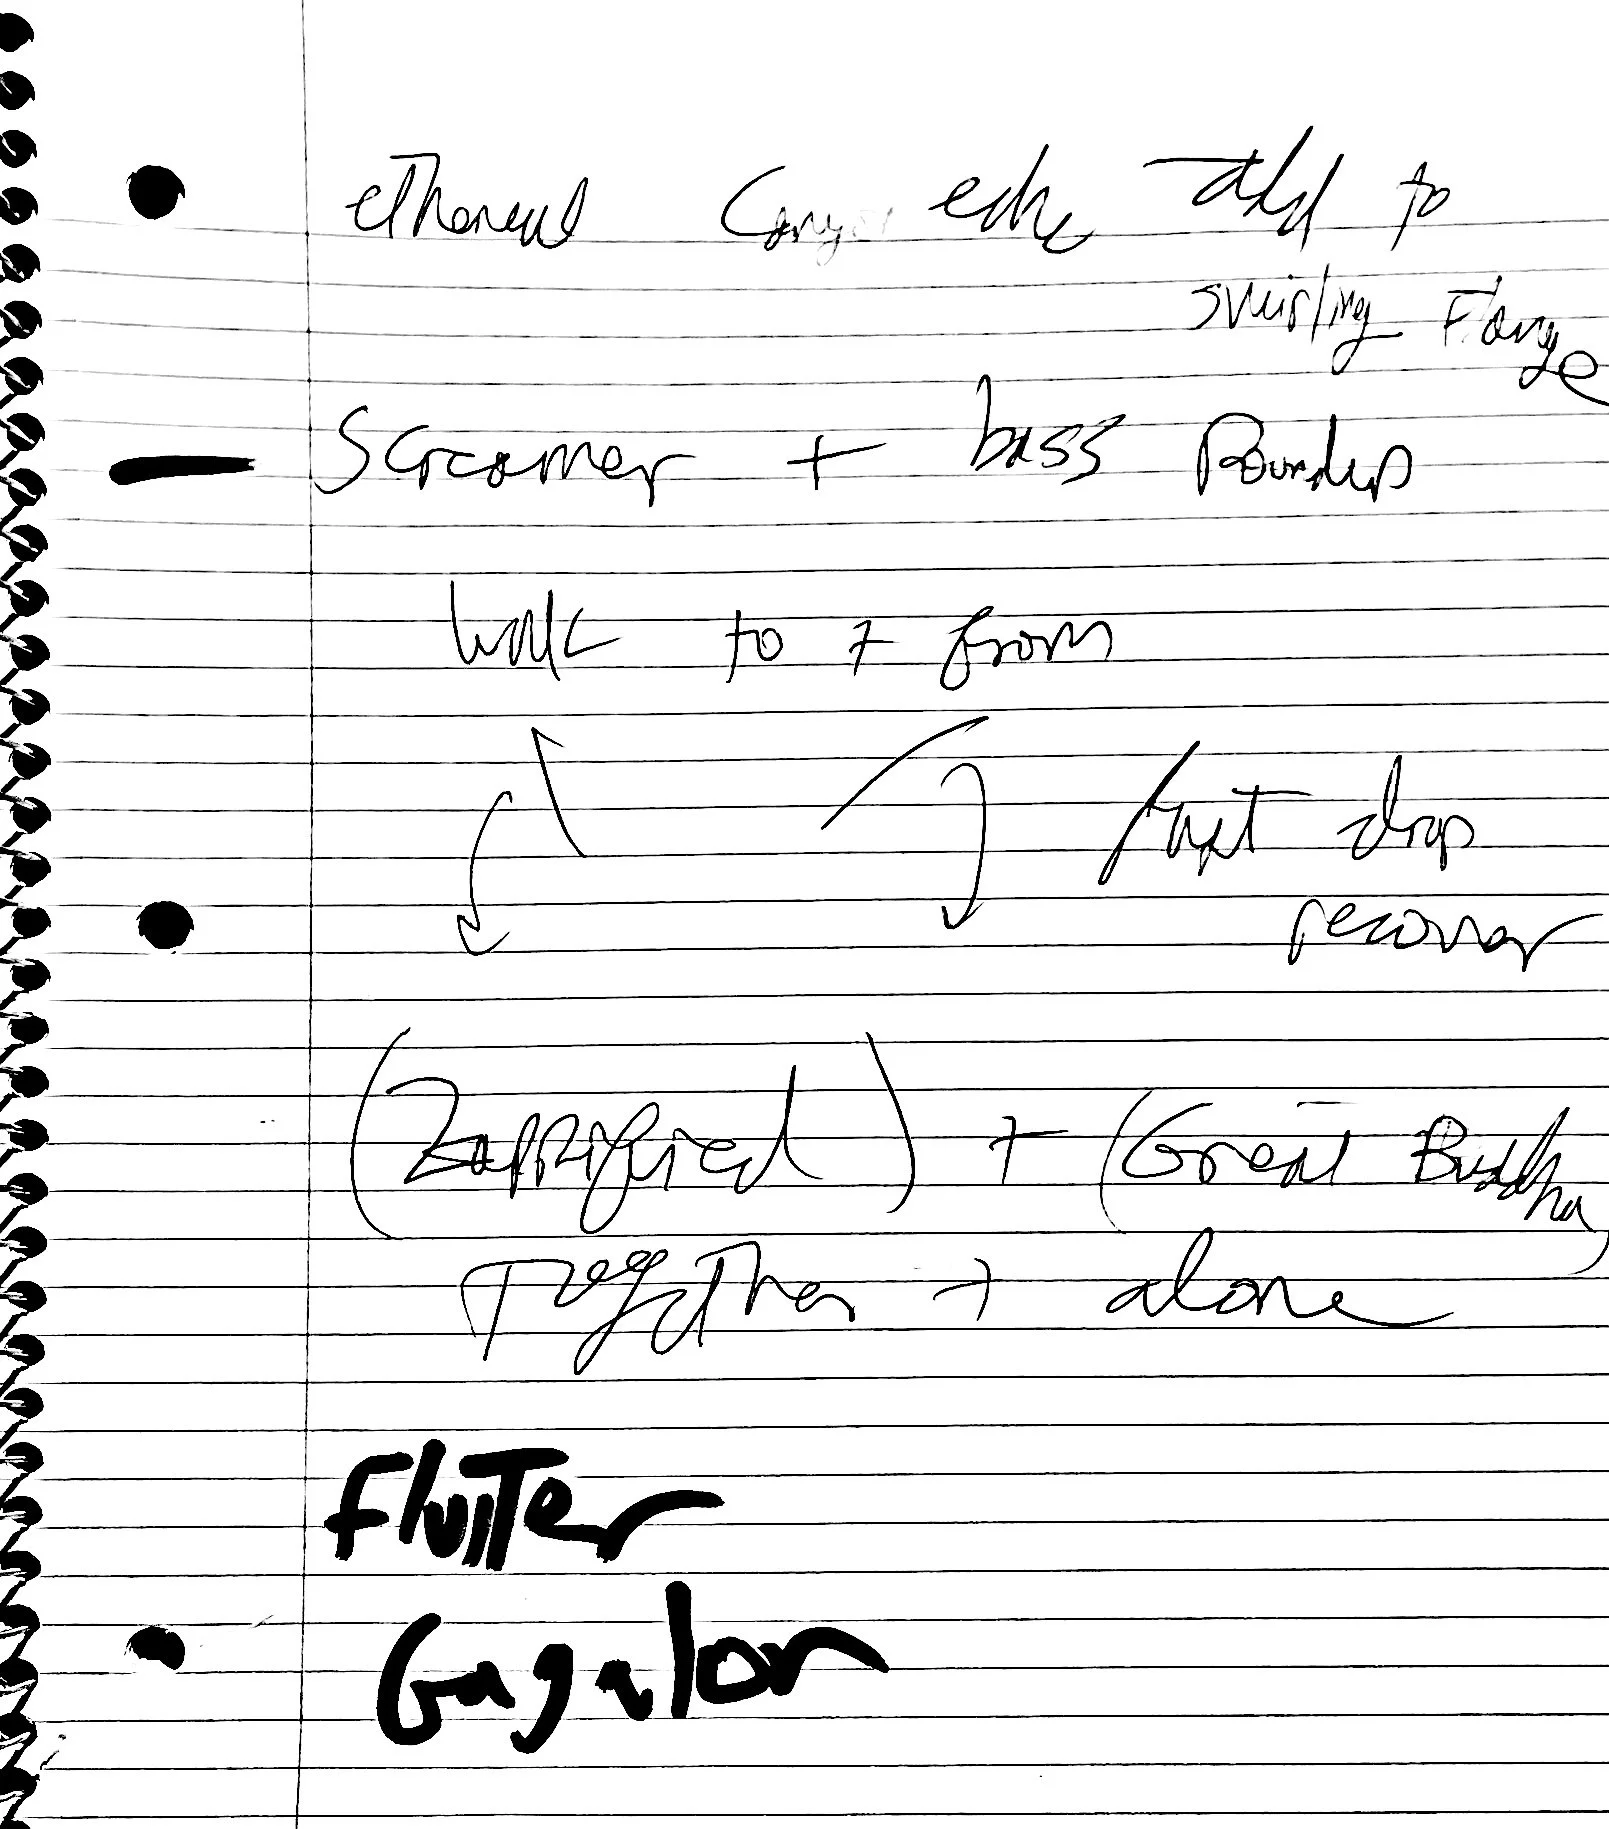 ethereal Canyon echo add to
swirling Flange
Screamer + bass Roundup
walk to + from
fast drop
recover
(Zapprified) + (Great Buddha)
Together + alone
Flutter
Gagalon